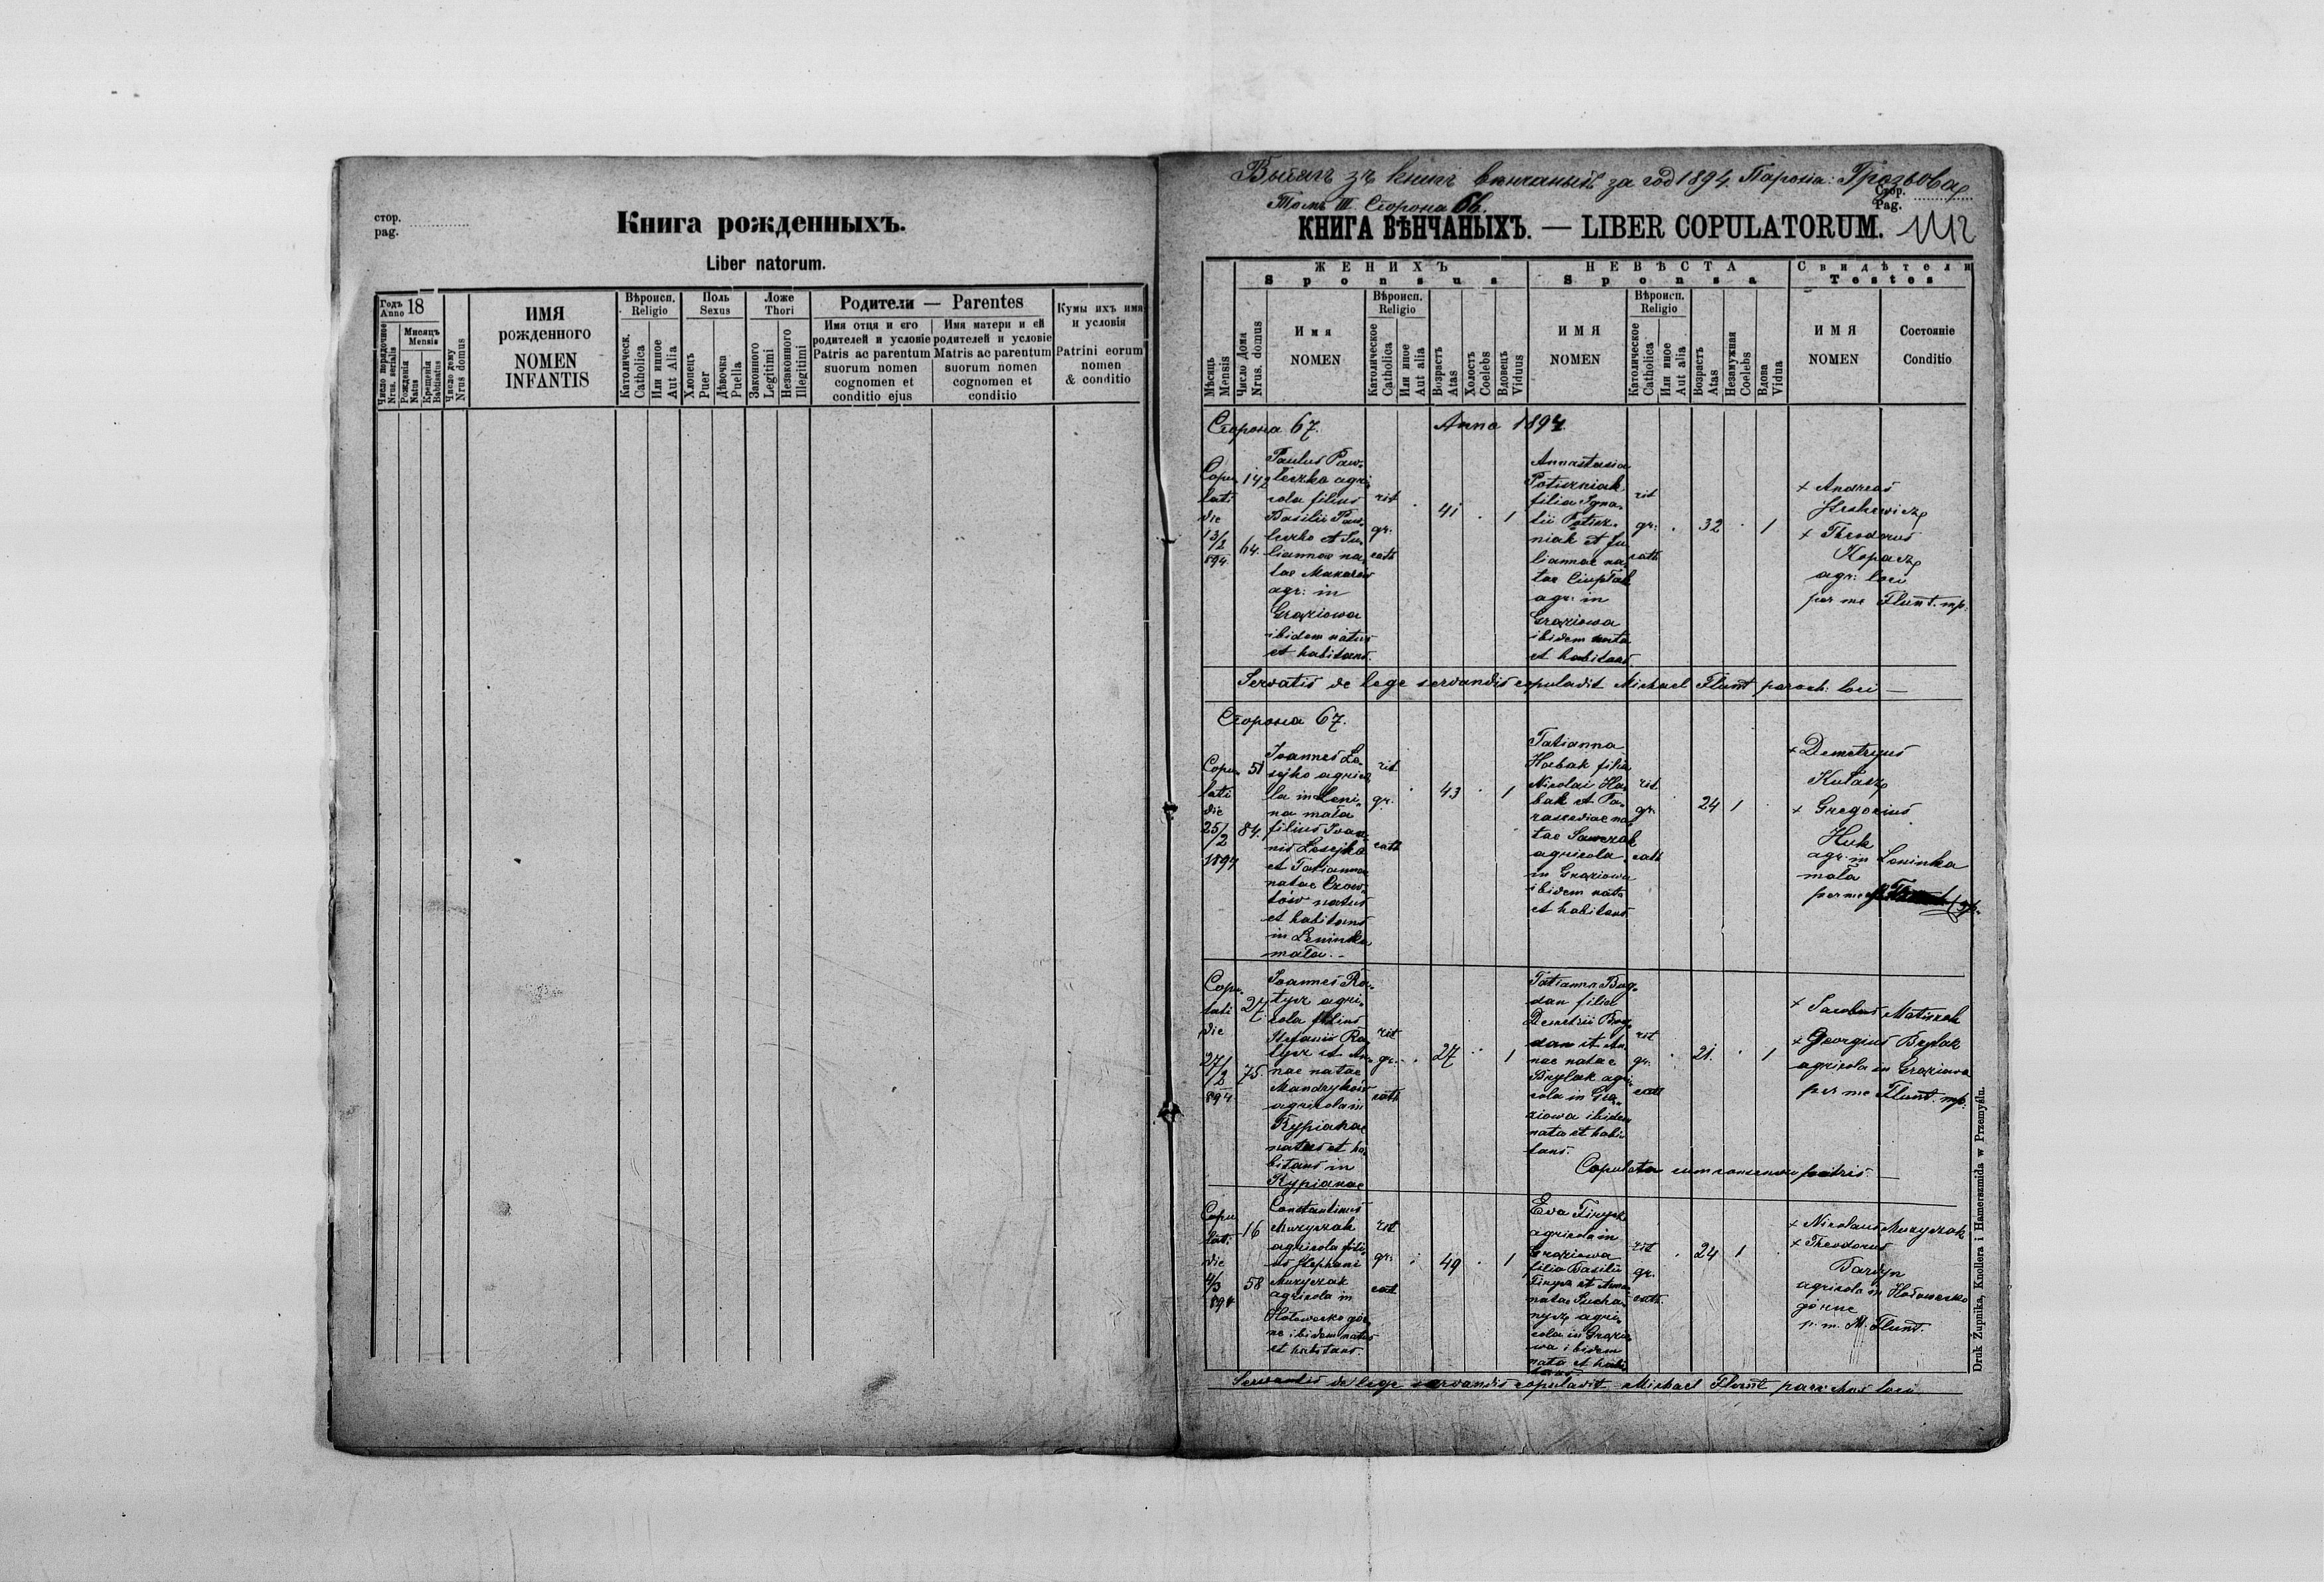 стор.
pag.
Книга рожденныхъ.
Liber natorum.
Годъ
Anno 18
Число порядочное
Nrus. serialis
Мисяць
Mensis
Рождения
Natus
Крещенія
Babtisatus
Число дому
Nrus domus
ИМЯ
рожденного
NOMEN
INFANTIS
Вѣроисп.
Religio
Католическ.
Catholica
Или инное
Aut Alia
Поль
Sexus
Хлопець
Puer
Дѣвочка
Puella
Ложе
Thori
Законного
Legitimi
Незаконного
Illegitimi
Родители — Parentes
Имя отця и его
родителей и условіе
Patris ac parentum
suorum nomen
cognomen et
conditio ejus
Имя матери и ей
родителей и условіе
Matris ac parentum
suorum nomen
cognomen et
conditio
Кумы ихъ имя
и условія
Patrini eorum
nomen
& conditio
за год 1894. Парохія: Грозьова
Томъ III Сторона 66.
Стор.
Pag.
КНИГА ВѢНЧАНЫХЪ. — LIBER COPULATORUM.
Мѣсяць
Mensis
ЖЕНИХЪ
Sponsus
Число Дома
Nrus. domus
Имя
NOMEN
Вѣроисп.
Religio
Католическое
Catholica
Или иное
Aut alia
Возрастъ
Atas
Холостъ
Coelebs
Вдовець
Viduus
НЕВѢСТА
Sponsa
ИМЯ
NOMEN
Вѣроисп.
Religio
Католическое
Catholica
Или иное
Aut alia
Возрастъ
Atas
Незамужная
Coelebs
Вдова
Vidua
Свидѣтели
Testes
ИМЯ
NOMEN
Состояніе
Conditio
Сторона 67. Anno 1894
Copu-
lati
die
13/2
894.
142
64.
Paulus Paw-
leszko agri-
cola filius
Basilii Paw-
leszko et Ju-
liannae na-
tae Makarow
agr: in
Graziowa
ibidem natus
et habitans.
rit
gr.
cath
41
1
Annastasia
filia Igna-
niak et Ju-
liannae na-
tae Ciupłak
agr. in
Graziowa
ibidem nata
et habitans
rit
gr:
cath
32
1
+ Andreas
+ Theodorus
Kopacz
agr: loci
per me Flunt. mp.
Servatis de lege servandis copulavit Michael Flunt paroch: loci —
Сторона 67.
Copu-
lati
die
25/2
1894
51
84.
Joannes Lo-
sejko agrico-
la in Leni-
na mała
filius Joan-
nis Losejko
et Tatianna
natae
natus
et habitans
in Leninka
mała.-
rit
gr.
cath
43
1
Tatianna
Habak filia
Nicolai Ha-
bak et Pa-
rascediae na-
tae Sawczak
agricola
in Graziowa
ibidem nata
et habitans
rit
gr.
cath
24
1
+ Demetryus
Kułacz
+ Gregorius
Huk
agr. in Leninka
mała
per me
Copu-
lati
die
27/2
894
27
75
Joannes Ra-
tycz agri-
cola filius
Stefanis Ra-
tycz et An-
nae natae
Mandryków
agricola in
Rypianae
natus et ha-
bitans in
Rypianae
rit
gr.
cath
27
1
Tatianna Bog-
dan filia
Demetrii Bog-
dan et An-
nae natae
Brylak agri-
cola in Gra-
ziowa ibidem
nata et habi-
tans.
rit
gr.
cath
21.
1
+ Jacobus Matiszak
+ Georgius Brylak
agricola in Graziowa
per me Flunt. mp.
Copulata cum consensu patris. —
Copu-
lati
die
4/3
894
16
58
Constantinus
Muzyczak
agricola fili-
us Stephani
Muzyczak
agricola in
Hołowecko gór-
ne ibidem natus
et habitans.
rit
gr.
cath
49
1
Eva
agricola in
Graziowa
filia Basilii
natae
agri-
cola in Grazio-
wa ibidem
nata et habi-
tans
rit
gr.
cath.
24
1
+ Nicolaus Muzyczak
+ Theodorus
Bardyn
agricola in Hołowecko
górne
p. m. M. Flunt.
Servandis de lege servandis copulavit Michael Flunt parochus loci
Druk Żupnika, Knollera i Hamerszmida w Przemyślu.